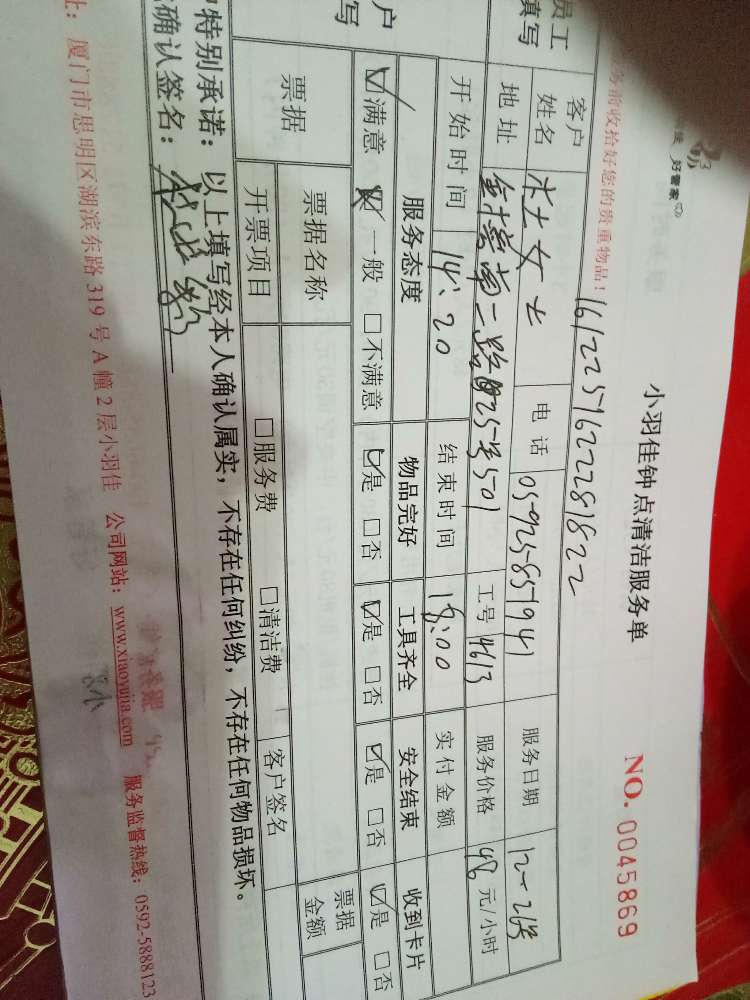 好管家
小羽佳钟点清洁服务单
NO. 0045869
务前收拾好您的贵重物品!
1612251622281822
员工填写
客户姓名 女士 电话 05925857941 服务日期 12-26号
地址 金榜南二路 25号501 工号 4613 服务价格 48 元/小时
开始时间 14:20 结束时间 18:00 实付金额
户写
服务态度 物品完好 工具齐全 安全结束 收到卡片
☑满意 一般 □不满意 ☑是 □否 ☑是 □否 ☑是 □否 ☑是 □否
票据 票据名称 票据金额
开票项目 □服务费 □清洁费 客户签名
特别承诺:以上填写经本人确认属实,不存在任何纠纷,不存在任何物品损坏。
确认签名:
址:厦门市思明区湖滨东路 319 号 A 幢 2 层小羽佳 公司网站:www.xiaoyujia.com 服务监督热线:0592-5888123